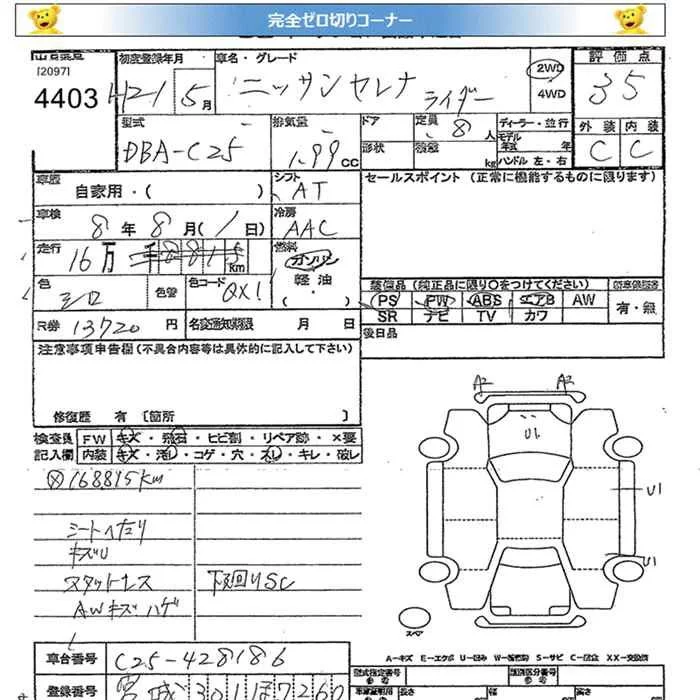 完全ゼロ切りコーナー
[2097]
4403
初度登録年月
H21年 5月
車名・グレード
ニッサンセレナ ライダー
2WD
4WD
評価点
3.5
型式
DBA-C25
排気量
1.99 CC
ドア
形状
定員
8人
積載
kg
ディーラー・並行
モデル年式 年
ハンドル 左・右
外装 内装
C C
車歴
自家用・( )
シフト
AT
セールスポイント (正常に機能するものに限ります)
車検
8年 8月(1日)
冷房
AAC
走行
16万 8815 km
燃料
ガソリン
軽油
・( )
色
シロ
色替
色コード
QX1
装備品 (純正品に限り○をつけてください)
PS PW ABS エアB AW
SR ナビ TV カワ
有・無
R券 13720円
名変通知期限 月 日
後日品
注意事項申告欄(不具合内容等は具体的に記入して下さい)
修復歴 有 [箇所 ]
検査員 FW キズ・飛石・ヒビ割・リペア跡・×要
記入欄 内装 キズ・汚レ・コゲ・穴・スレ・キレ・破レ
ⓧ168815km
シートヘタリ
キズU
スタットレス
下回りSC
AWキズハゲ
A2 A2
U1
U1
U1
スペア
A-キズ E-エクボ U-凹み W-補修跡 S-サビ C-腐食 XX-交換済
車台番号 C25-428186
型式指定番号
類別区分番号
登録番号 宮城301ほ7260
長さ 幅 高さ